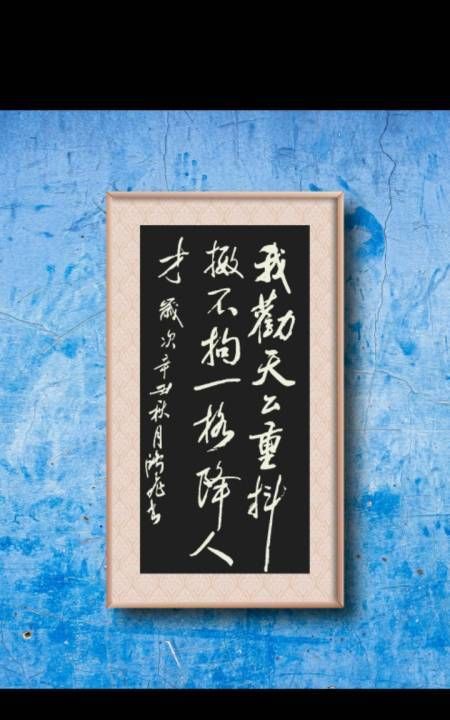 我勸天公重抖
擻不拘一格降人
才 歲次辛丑秋月